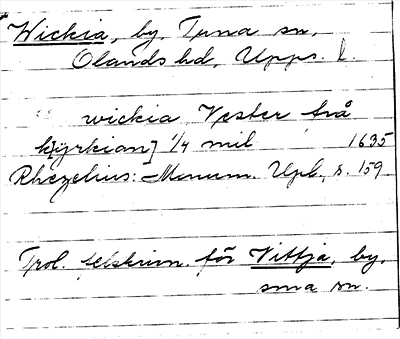 Wickia, by, Tuna sn,
Olands hd, Upps. l.
wickia Vester frå
k[yrkian] 1/4 mil 1635
Rhezelius: Monum. Upl., s. 159
Trol. felskrivn. för Vittja, by,
sma sn.